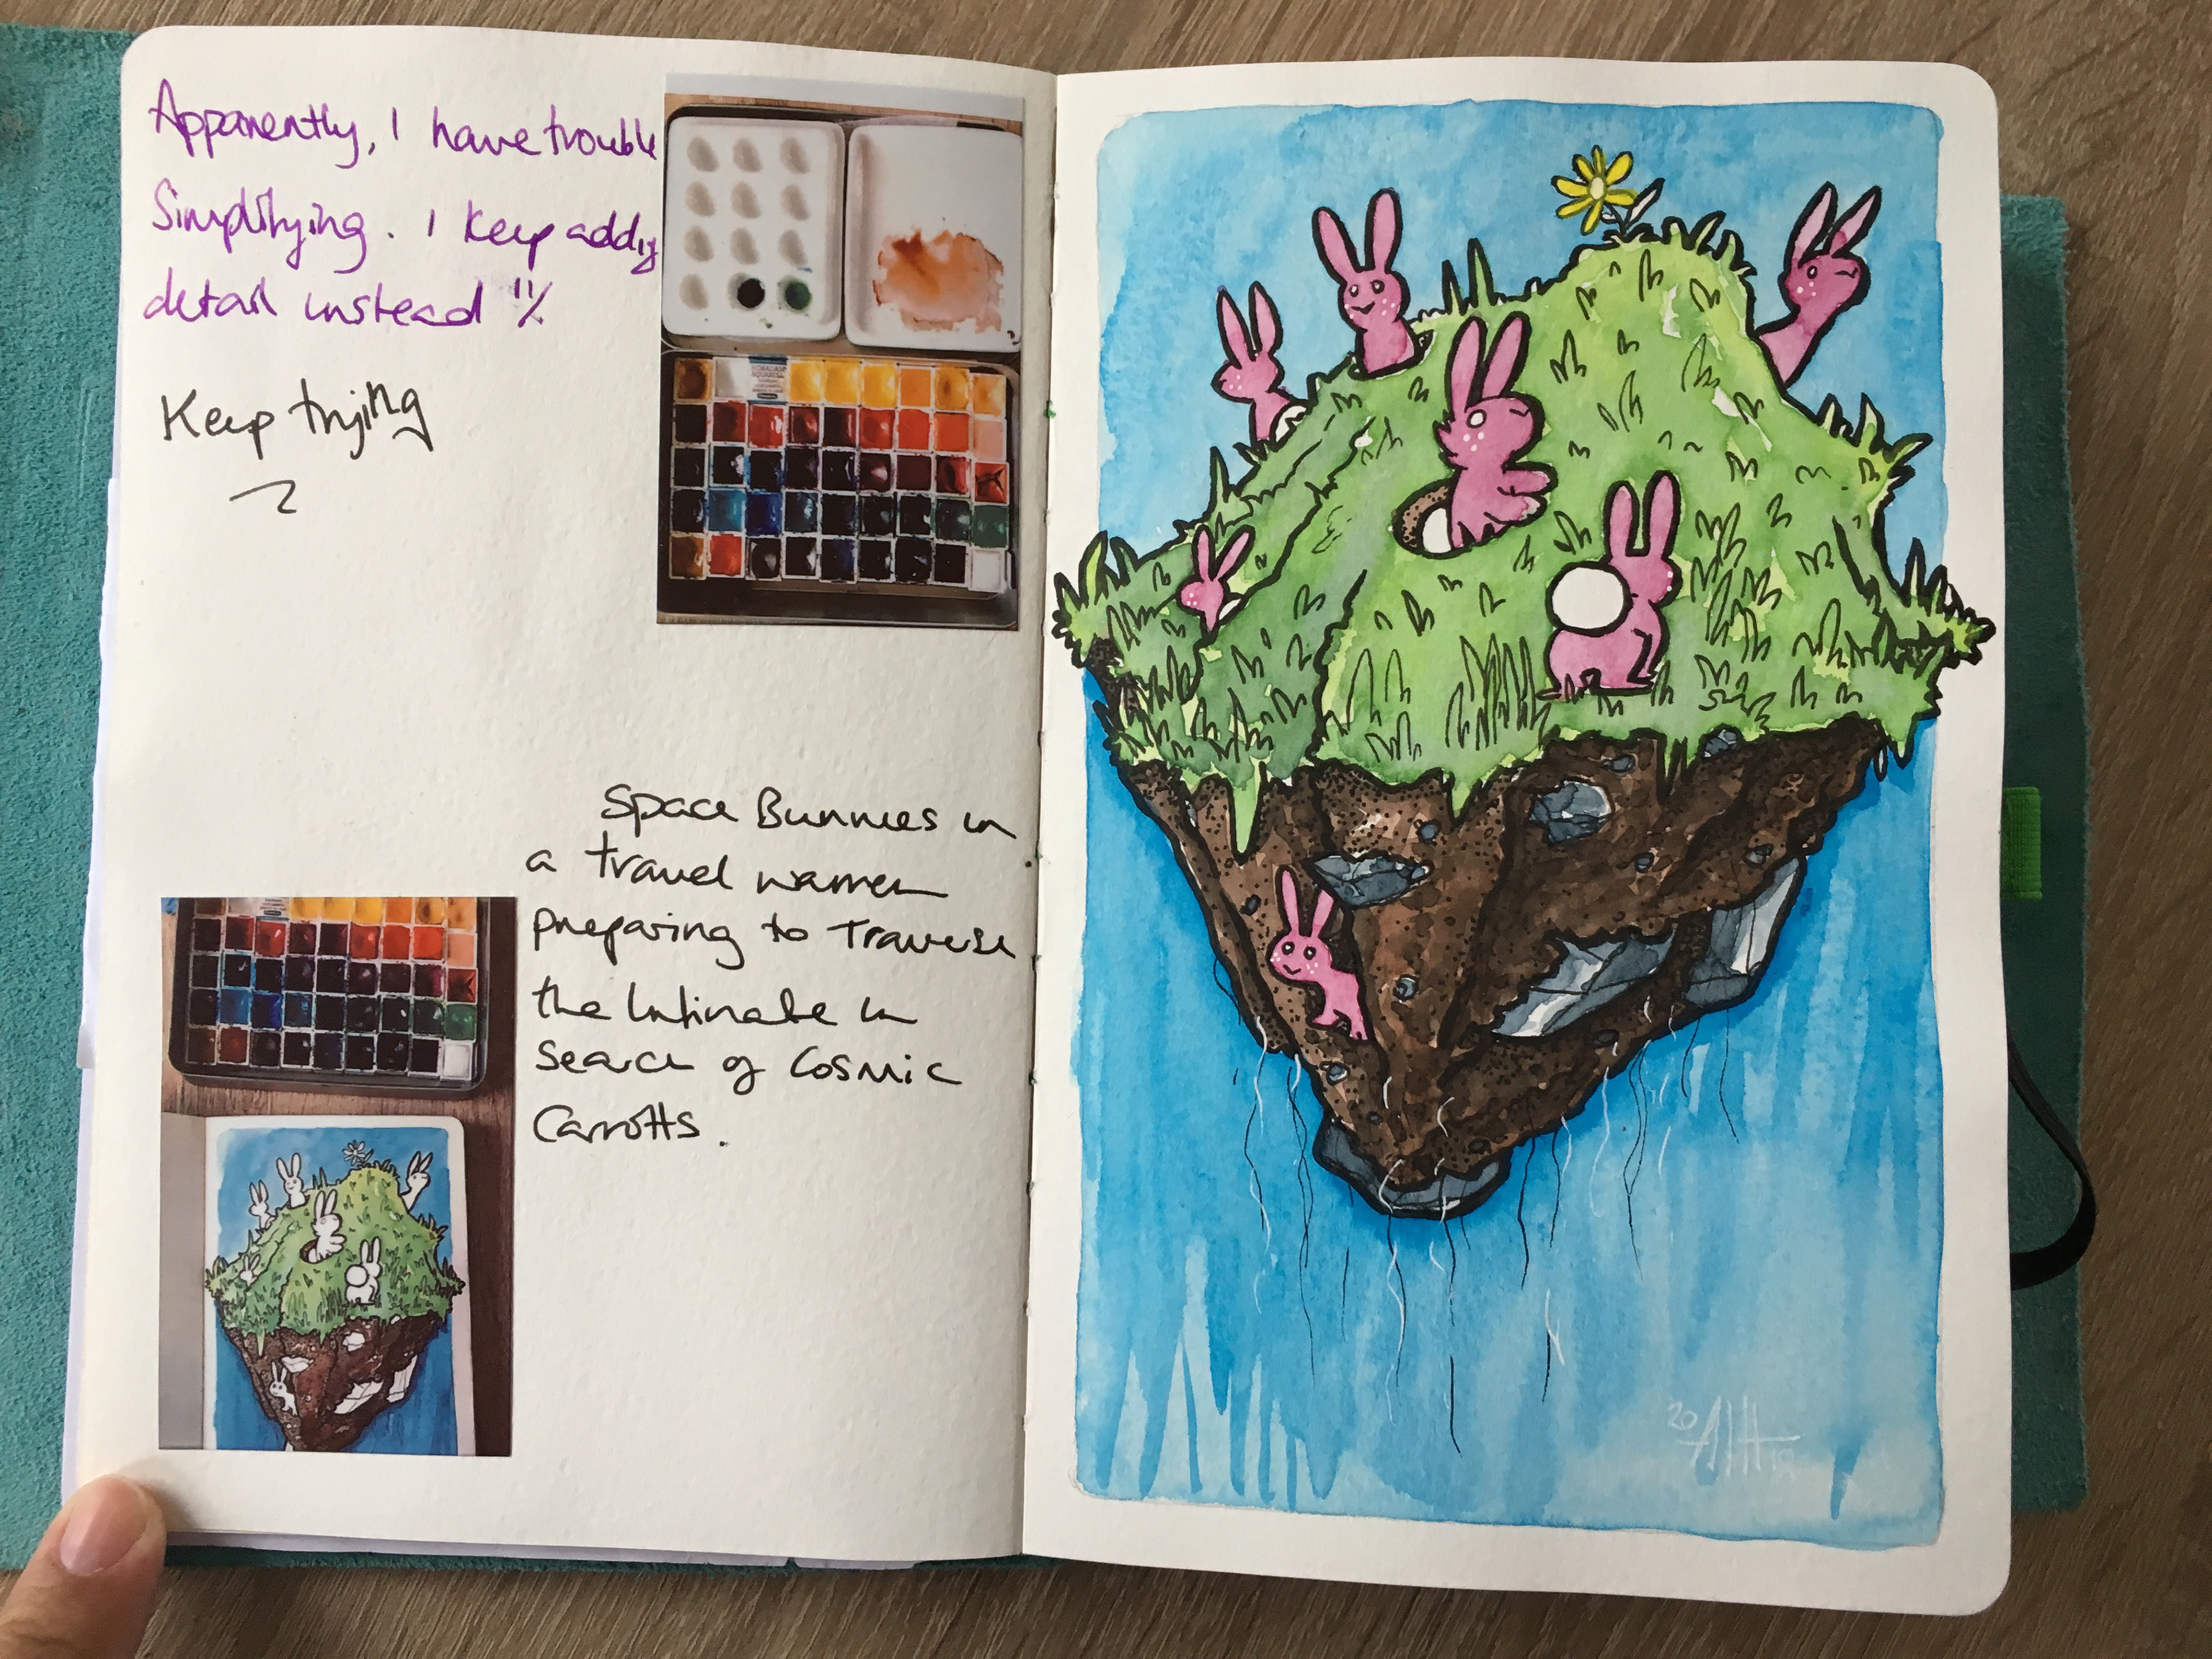 Apparently, I have trouble
Simplifying. I keep adding
detail instead
Keep trying
Space Bunnies in
a travel warren
preparing to Traverse
the Infinate in
search of Cosmic
Carrotts.
20
19